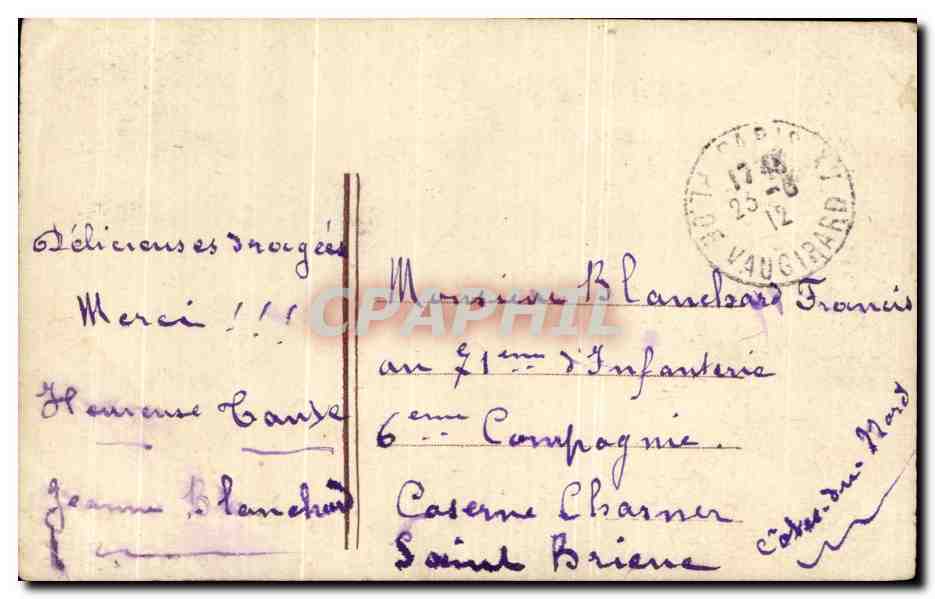 Délicieuses dragées
Merci !!!
Heureuse Tante
Jeanne Blanchard
Monsieur Blanchard Francis
au 71eme d'Infanterie
6eme Compagnie.
Caserne Charner
Saint Brieuc
Côtes-du-Nord
PARIS XV
17 45
25 -8
12
VAUGIRARD
CPAPHIL